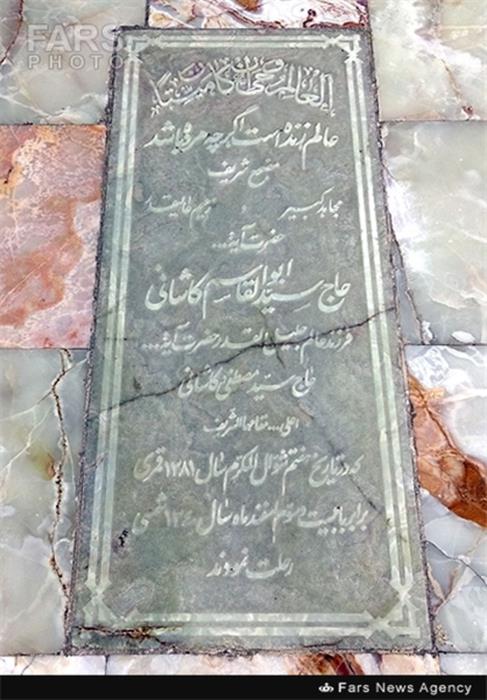 FARS
PHOTO
العالم حی و ان کان میتا
عالم زنده است اگر چه مرده باشد
مضجع شریف
مجاهد کبیر و زعیم عالیقدر
حضرت آیة...
حاج سید ابوالقاسم کاشانی
فرزند عالم جلیل القدر حضرت آیة...
حاج سید مصطفی کاشانی
اعلی... مقامهما الشریف
که در تاریخ هفتم شوال المکرم سال ۱۳۸۱ قمری
برابر با بیست و سوم اسفند ماه سال ۱۳۴۰ شمسی
رحلت نمودند
Fars News Agency